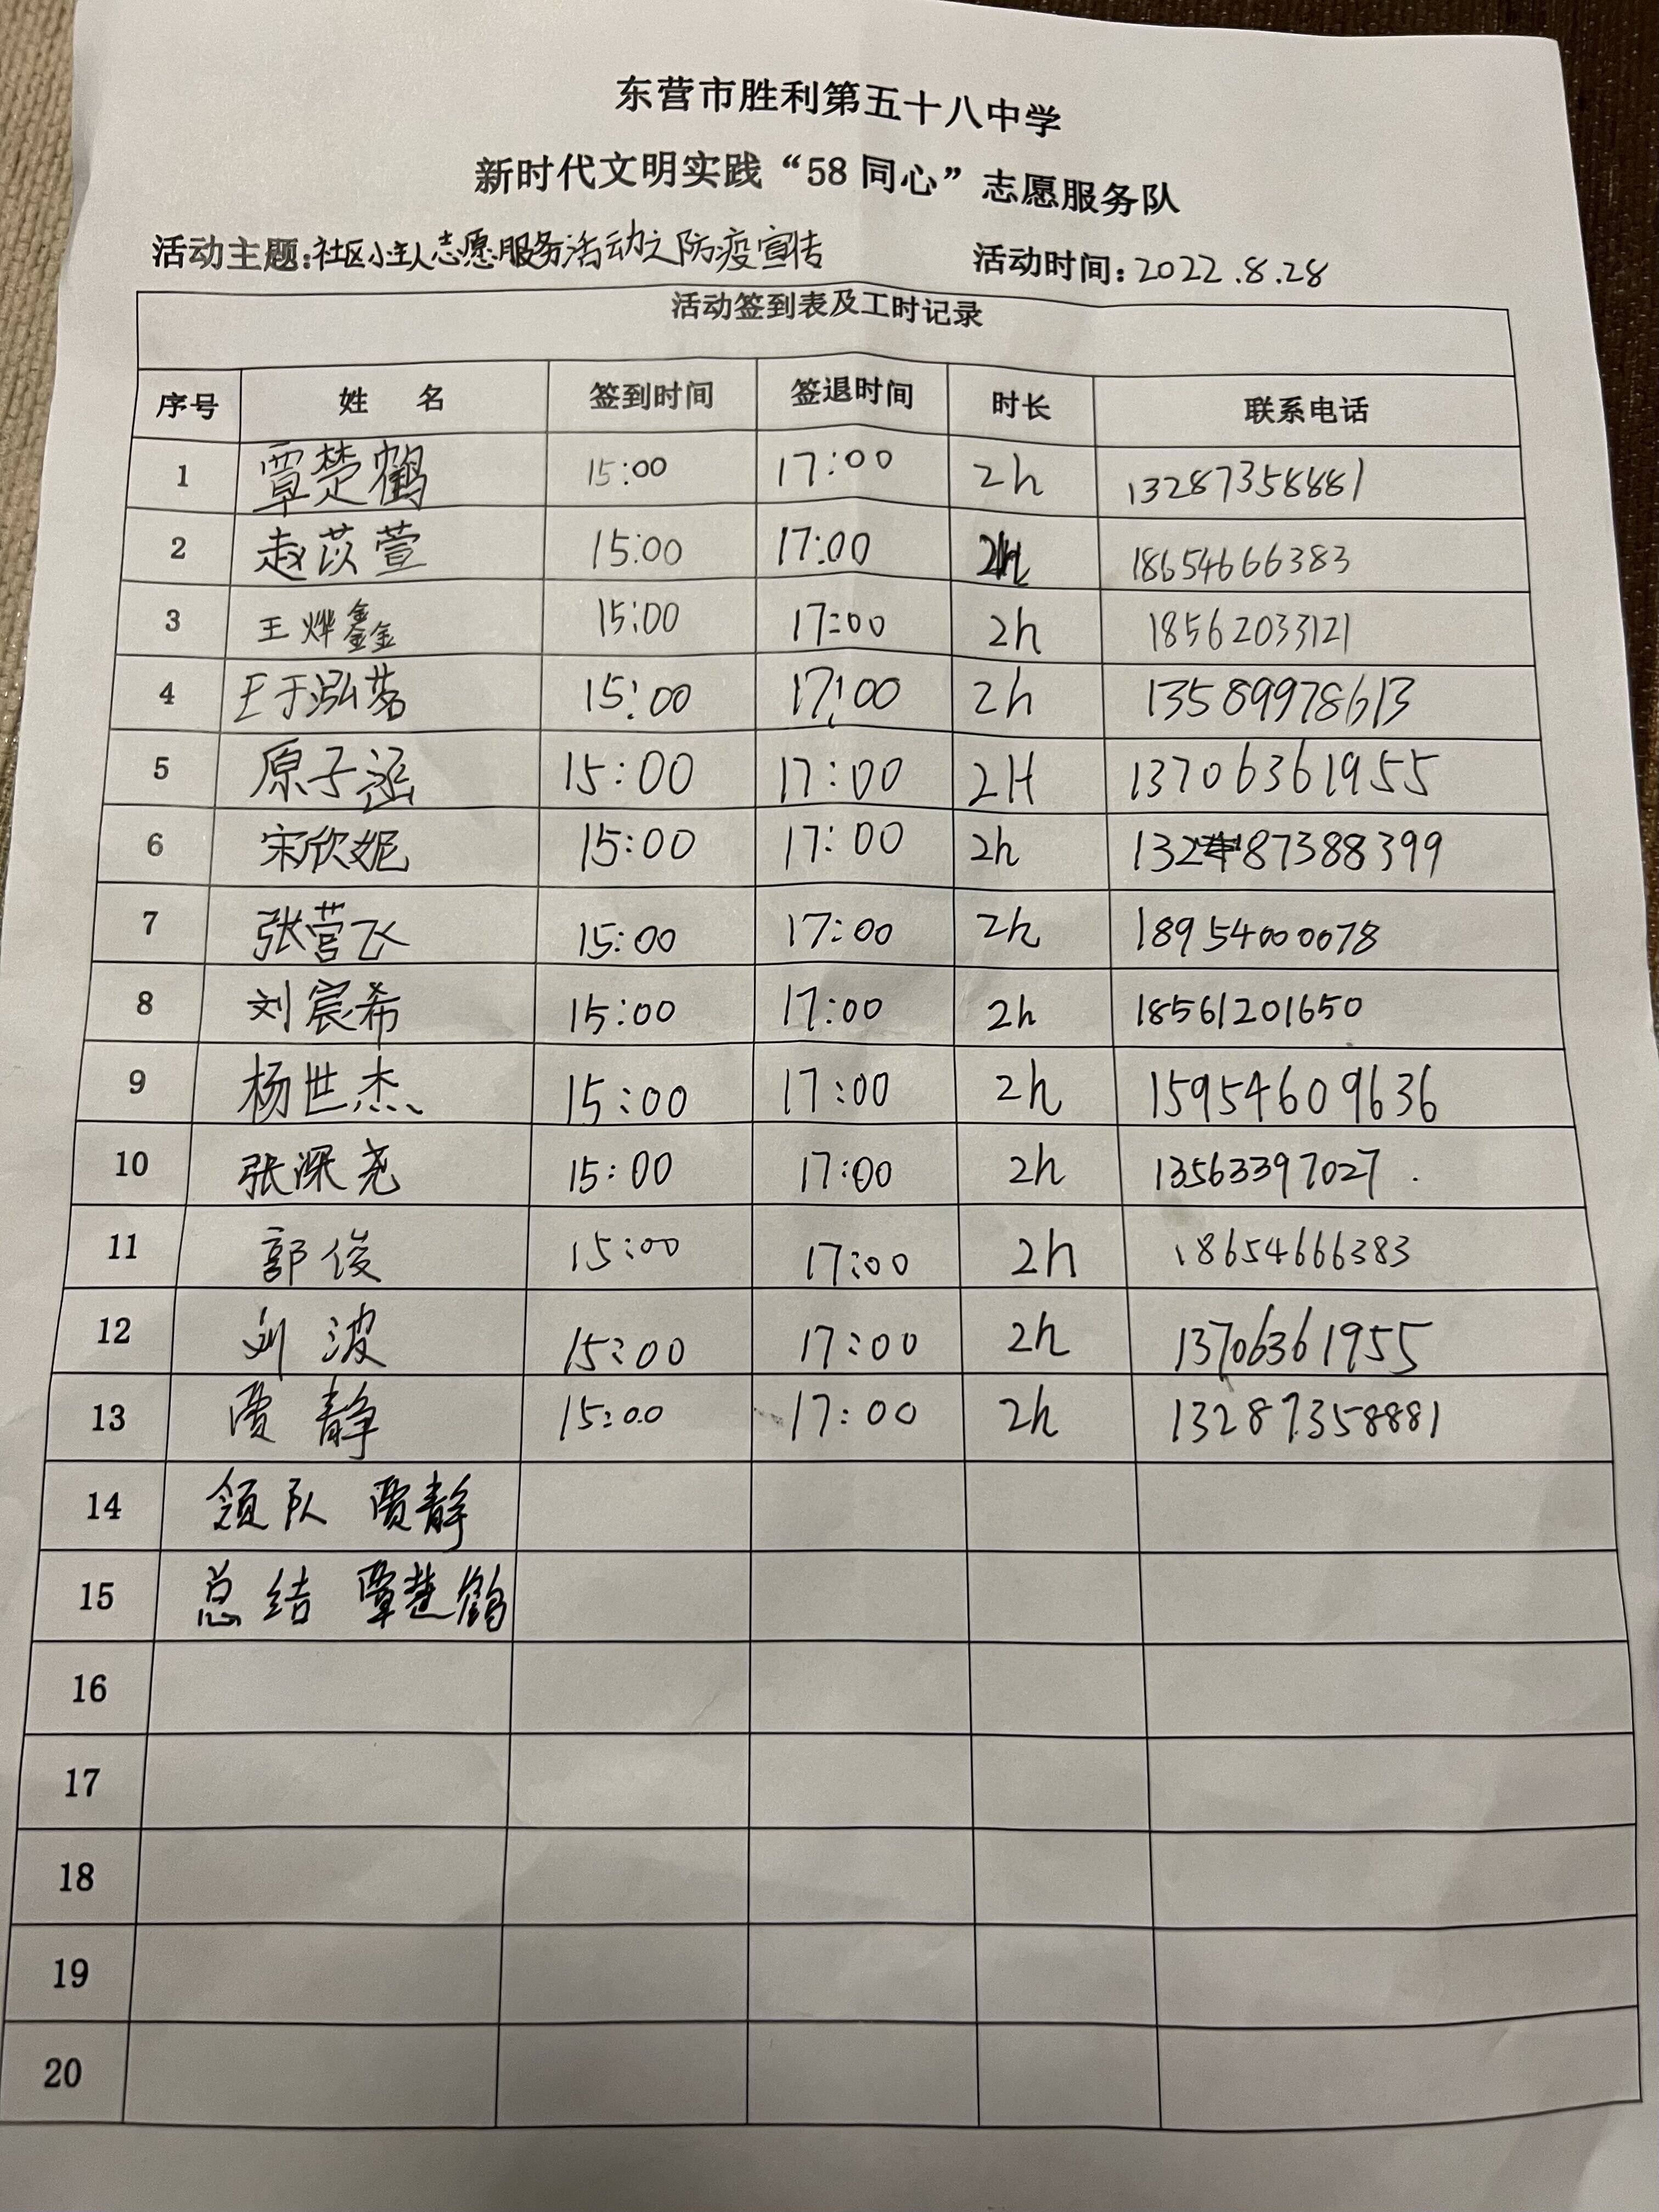 东营市胜利第五十八中学
新时代文明实践“58同心”志愿服务队
活动主题:社区小主人志愿服务活动之防疫宣传 活动时间:2022.8.28
活动签到表及工时记录
序号 姓 名 签到时间 签退时间 时长 联系电话
1 覃楚鹤 15:00 17:00 2h 13287358881
2 赵苡萱 15:00 17:00 2h 18654666383
3 王烨鑫 15:00 17:00 2h 18562033121
4 王于泓茗 15:00 17:00 2h 13589978613
5 原子涵 15:00 17:00 2H 13706361955
6 宋欣妮 15:00 17:00 2h 13287388399
7 张营飞 15:00 17:00 2h 18954000078
8 刘宸希 15:00 17:00 2h 18561201650
9 杨世杰 15:00 17:00 2h 15954609636
10 张深尧 15:00 17:00 2h 13563397027
11 郭俊 15:00 17:00 2h 18654666383
12 刘波 15:00 17:00 2h 13706361955
13 贾静 15:00 17:00 2h 13287358881
14 领队 贾静
15 总结 覃楚鹤
16
17
18
19
20